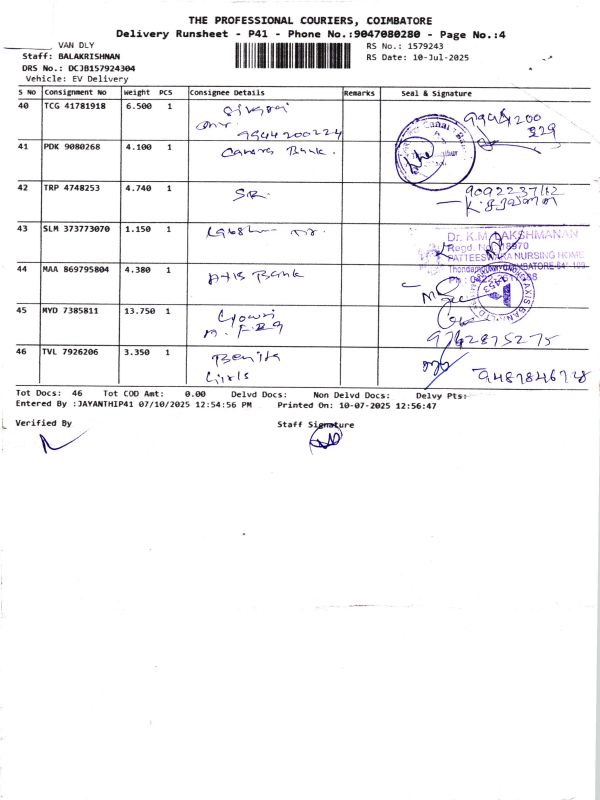 THE PROFESSIONAL COURIERS, COIMBATORE
Delivery Runsheet - P41 - Phone No.:9047080280 - Page No.:4
VAN DLY
RS No.: 1579243
Staff: BALAKRISHNAN
RS Date: 10-Jul-2025
DRS No.: DCJB157924304
Vehicle: EV Delivery
S No Consignment No Weight PCS Consignee Details Remarks Seal & Signature
40 TCG 41781918 6.500 1
9944200224
41 PDK 9080268 4.100 1 Canara Bank.
42 TRP 4748253 4.740 1 S.R.
43 SLM 373773070 1.150 1
Dr. K.M. LAKSHMANAN
NURSING HOME
44 MAA 869795804 4.380 1 Axis Bank
45 MYD 7385811 13.750 1 Gowri
9762875275
46 TVL 7926206 3.350 1
Girls
9487846728
Tot Docs: 46 Tot COD Amt: 0.00 Delvd Docs: Non Delvd Docs: Delvy Pts:
Entered By :JAYANTHIP41 07/10/2025 12:54:56 PM Printed On: 10-07-2025 12:56:47
Verified By Staff Signature